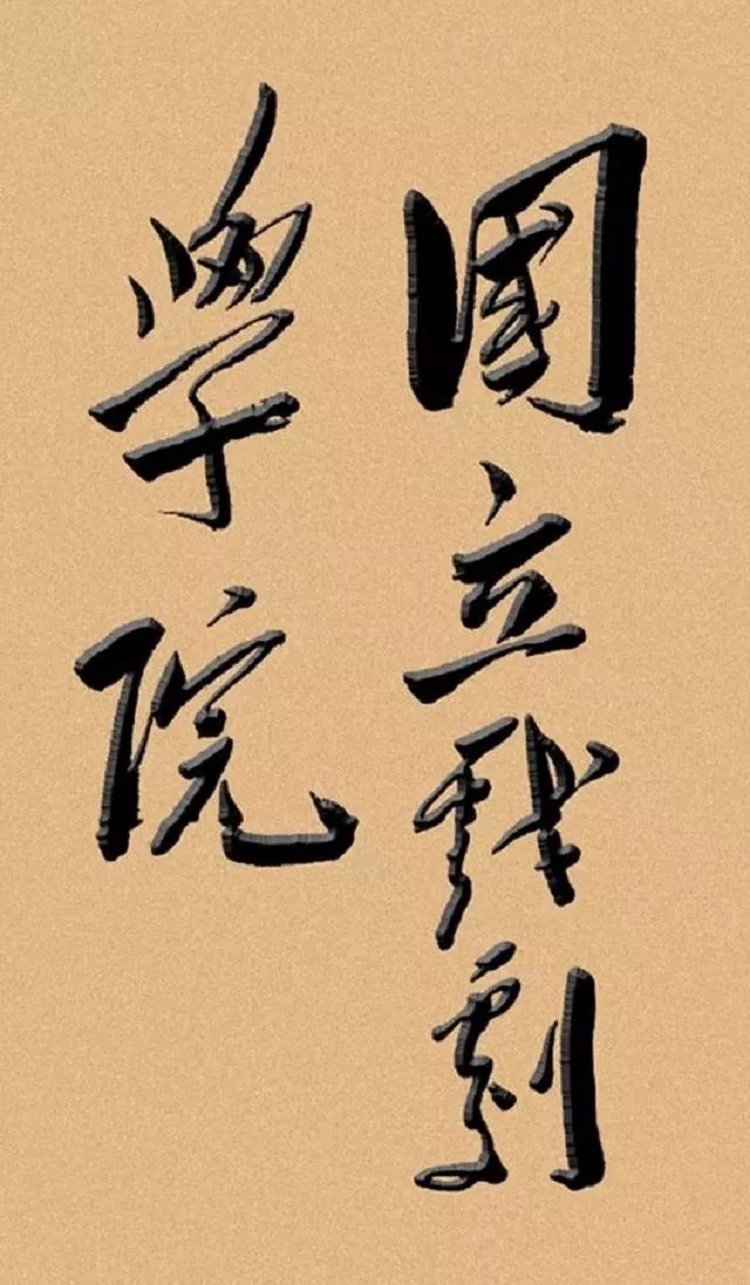 國立戏劇
學院